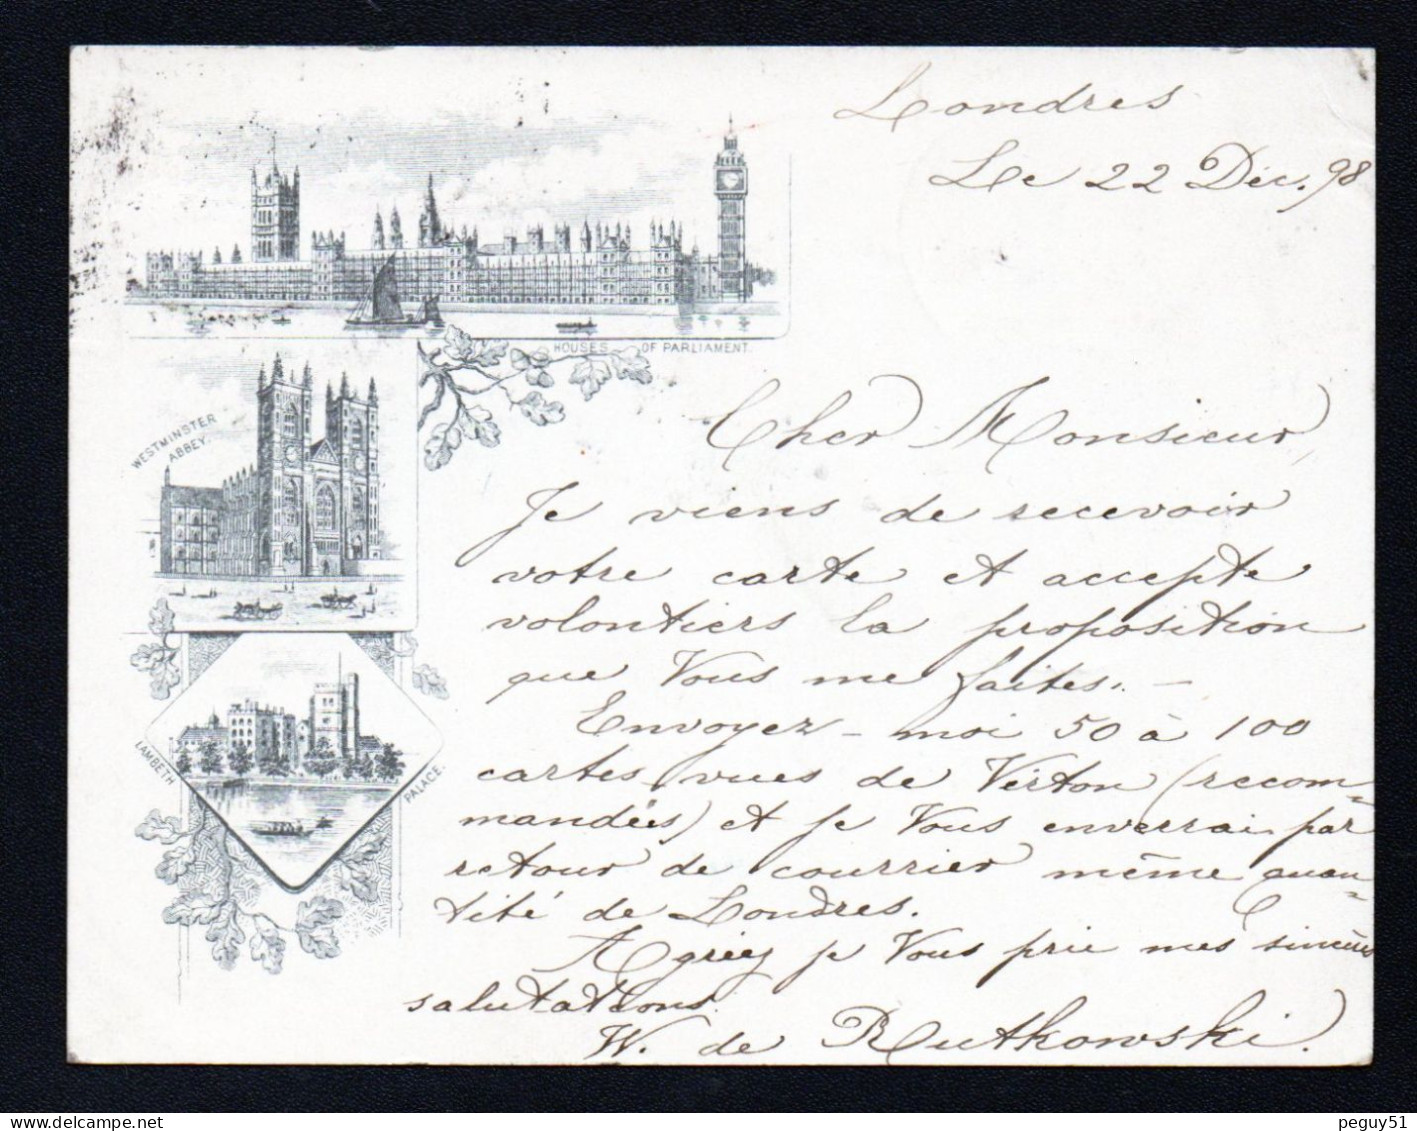 Londres
Le 22 Déc. 98
HOUSES OF PARLIAMENT.
WESTMINSTER
ABBEY.
LAMBETH PALACE.
Cher Monsieur,
Je viens de recevoir
votre carte et accepte
volontiers la proposition
que Vous me faites. —
Envoyez-moi 50 à 100
cartes-vues de Virton (recom-
mandées) et je Vous enverrai par
retour de courrier même quan-
tité de Londres.
Agréez je Vous prie mes sincères
salutations.
W. de Rutkowski.
peguy51